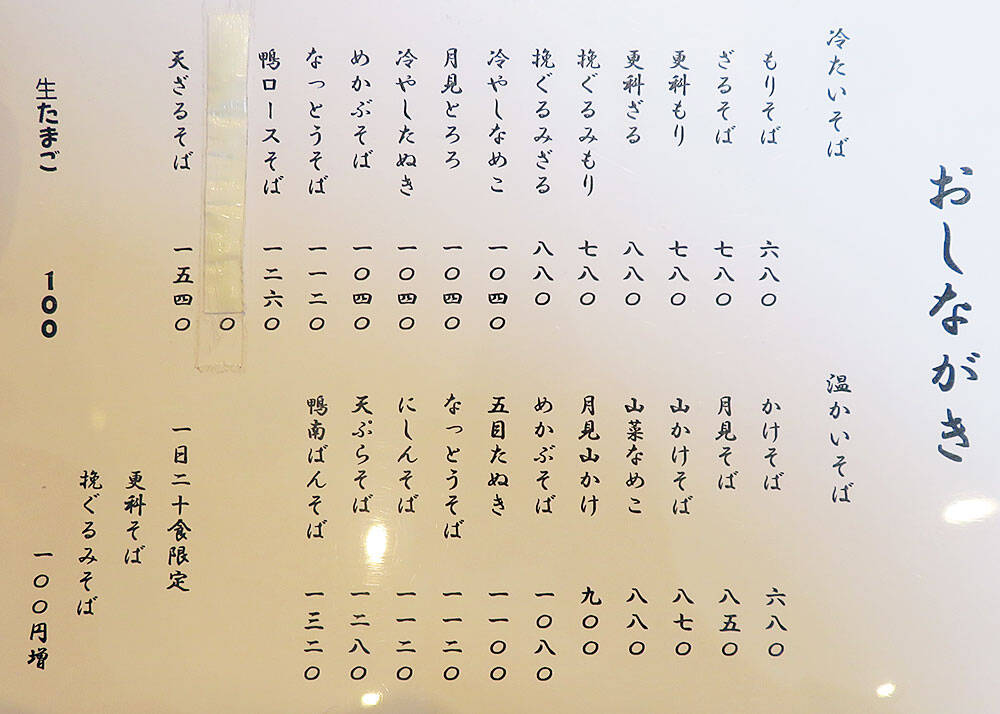 おしながき
冷たいそば
もりそば 六八〇
ざるそば 七八〇
更科もり 七八〇
更科ざる 八八〇
挽ぐるみもり 七八〇
挽ぐるみざる 八八〇
冷やしなめこ 一〇四〇
月見とろろ 一〇四〇
冷やしたぬき 一〇四〇
めかぶそば 一〇四〇
なっとうそば 一一二〇
鴨ロースそば 一二六〇
〇
天ざるそば 一五四〇
生たまご 100
温かいそば
かけそば 六八〇
月見そば 八五〇
山かけそば 八七〇
山菜なめこ 八八〇
月見山かけ 九〇〇
めかぶそば 一〇八〇
五目たぬき 一一〇〇
なっとうそば 一一二〇
にしんそば 一一二〇
天ぷらそば 一二八〇
鴨南ばんそば 一三二〇
一日二十食限定
更科そば
挽ぐるみそば
一〇〇円増